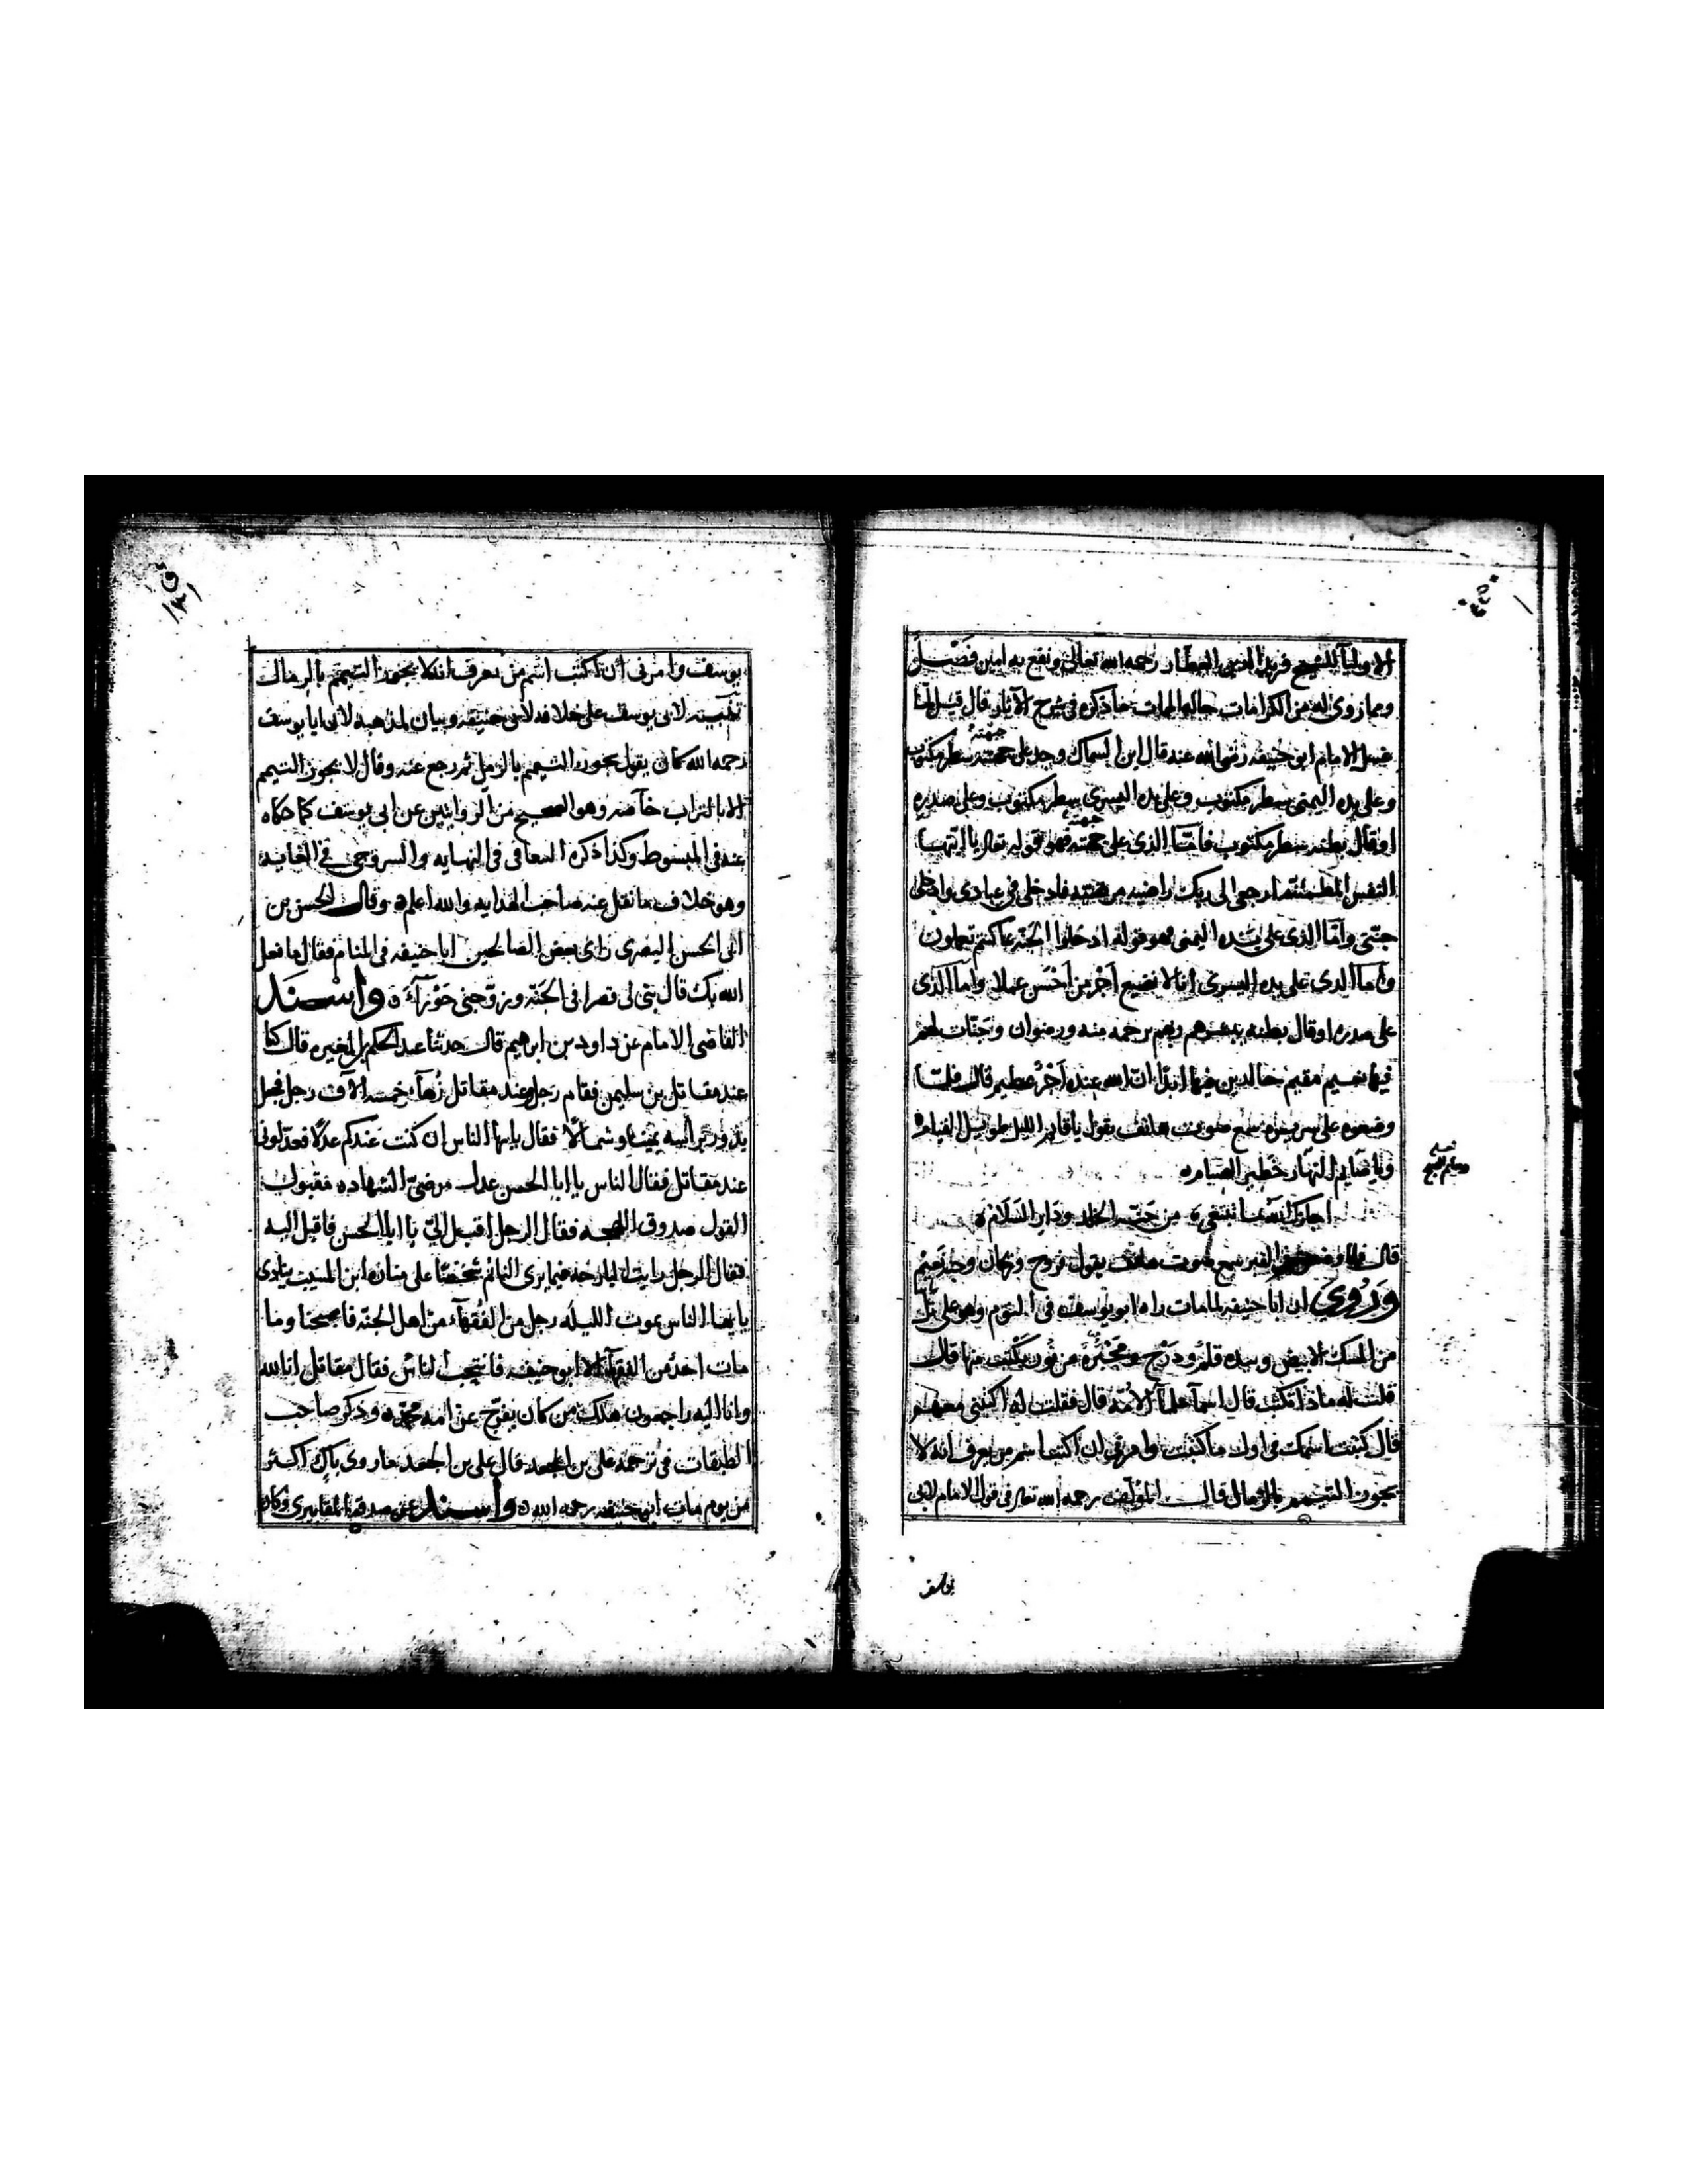 الاولياء للشيخ فريد الدين العطار رحمه الله تعالى ونفع به امين فَصْل
ومما روى له من الكرامات حاله الممات ما ذكره فى شرح الآثار قال قيل لما
غسل الامام ابو حنيفه رضى الله عنه قال ابن السماك وجد على جبهته سطر مكتوب
جبهته
وعلى يده اليمنى سطر مكتوب وعلى يده اليسرى سطر مكتوب وعلى صدره
او قال بطنه سطر مكتوب فامّا الذى على جبهته فهو قوله تعالى يا ايتها
جبهته
النفس المطمئنه ارجعى الى ربك راضيه مرضيه فادخلى فى عبادى وادخلى
جنّتى وامّا الذى على يده اليمنى فهو قوله ادخلوا الجنّه بما كنتم تعملون
وامّا الذى على يده اليسرى انا لا نضيع اَجْر من اَحْسَن عملا واما الذى
على صدره او قال بطنه يبشرهم ربهم برحمه منه ورضوان وجنّات لهم
فيها نعيم مقيم خالدين فيها ابدًا انّ الله عنده اَجْرٌ عظيم قال فلمّا
وضعوه على سريره سمع صوت هاتف يقول يا قايم الليل طويل القيام
ويا صايم النهار خطير الصيام
من جنّه الخلد ودار السّلام
قال فلما وضع فى القبر سمع صوت هاتف يقول فروح وريحان وجنة نعيم
وَرُوِيَ ان ابا حنيفه لما مات راه ابو يوسف فى النوم وهو على تل
من المسك الابيض وبيده قلم ودرج ومحبرة من نور يكتب منها قال
قلت له ماذا تكتب قال اسمآ علمآ الامّة قال فقلت له اكتبنى معهم
قال كتبت اسمك فى اول ما كتبت وامرنى ان اكتب اسم من يعرف انه لا
يجوز التيمم بالرمال قال المؤلف رحمه الله تعالى فى قول الامام لابى
يوسف
يوسف وامرنى ان اكتب اسم من يعرف انه لا يجوز التيمم بالرمال
تنبيه لابى يوسف على خلافه لابى حنيفه وبيان لمذهبه لان ابا يوسف
رحمه الله كان يقول يجوز التيمم بالرمل ثم رجع عنه وقال لا يجوز التيمم
الا بالتراب خآصه وهو الصحيح من الروايتين عن ابى يوسف كما حكاه
عنه فى المبسوط وكذا ذكره السغناقى فى النهايه والسروجى فى الغايه
وهو خلاف ما نقل عنه صاحب الهدايه والله اعلم وقال الحسن بن
ابى الحسن البصرى راى بعض الصالحين ابا حنيفه فى المنام فقال ما فعل
الله بك قال بنى لى قصرا فى الجنّه وزوّجنى حَوْرَآءَ واسْنَدَ
القاضى الامام عن داود بن ابرهيم قال حدثنا عبد الحكم بن المغيره قال كنا
عند مقاتل بن سليمن فقام رجل وعند مقاتل زُهآء خمسه الآف رجل فجعل
يدور براسه يمينا وشمالًا فقال يا ايها الناس ان كنت عندكم عدلًا فعدّلونى
عند مقاتل فقال الناس يا ابا الحسن عدل مرضىّ الشهاده مقبول
القول صدوق اللهجه فقال الرجل اقبل الىّ يا ابا الحسن فاقبل اليه
فقال الرجل رايت البارحه فيما يرى النائم شخصًا على مناره ابن المسيب ينادى
يا ايها الناس يموت الليله رجل من الفُقهآء من اهل الجنّه فاصبحنا وما
مات احدٌ من الفقهآء الا ابو حنيفه فانتحب الناس فقال مقاتل انا لله
وانا اليه راجعون هلك من كان يفرّج عن امه محمّد وذكر صاحب
الطبقات فى ترجمة على بن الجعد قال على بن الجعد ما روى باكٍ اكثر
من يوم مات ابى حنيفه رحمه الله واسند عن صدقه المقابرى وكان